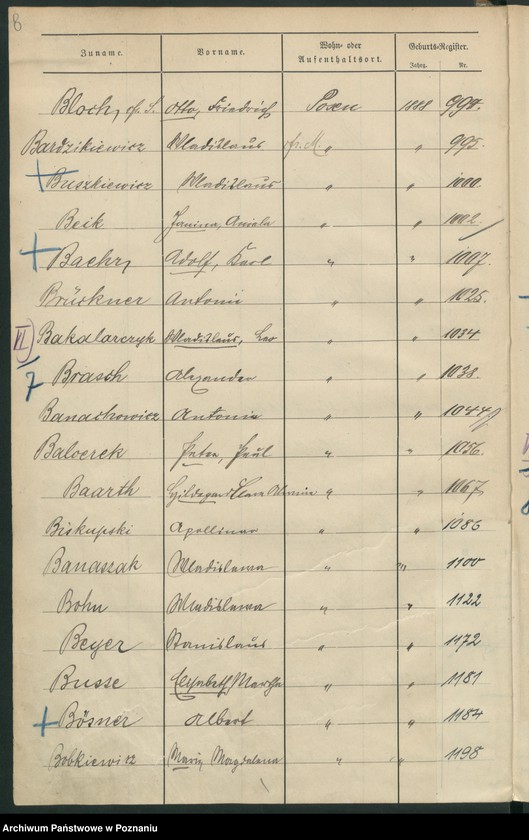 8
Zuname. Vorname. Wohn- oder Aufenthaltsort. Geburts-Register.
Jahrg. Nr.
Bloch, Otto, Friedrich Posen 1888 994.
Bardzikiewicz Wladislaus " " 995.
Buszkiewicz Wladislaus " " 1000.
Beik Janina, Aniela " " 1002.
Baehr, Adolf, Karl " " 1007
Brückner Antonie " " 1025.
VI) Bakalarczyk Wladislaus, Leo " " 1034
7 Brasch Alexander " " 1038.
Banachowicz Antonie " " 1044
Balcerek Peter, Paul " " 1056.
Baarth Hildegard Clara " " 1067
Biskupski Apollinar " " 1086
Banaszak Wladislawa " " 1100
Bohn Wladislawa " " 1122
Beyer Stanislaus " " 1172
Busse Elisabeth, Martha " " 1181
Bösner Albert " " 1184
Bobkiewicz Marie, Magdalena " " 1198
Archiwum Państwowe w Poznaniu